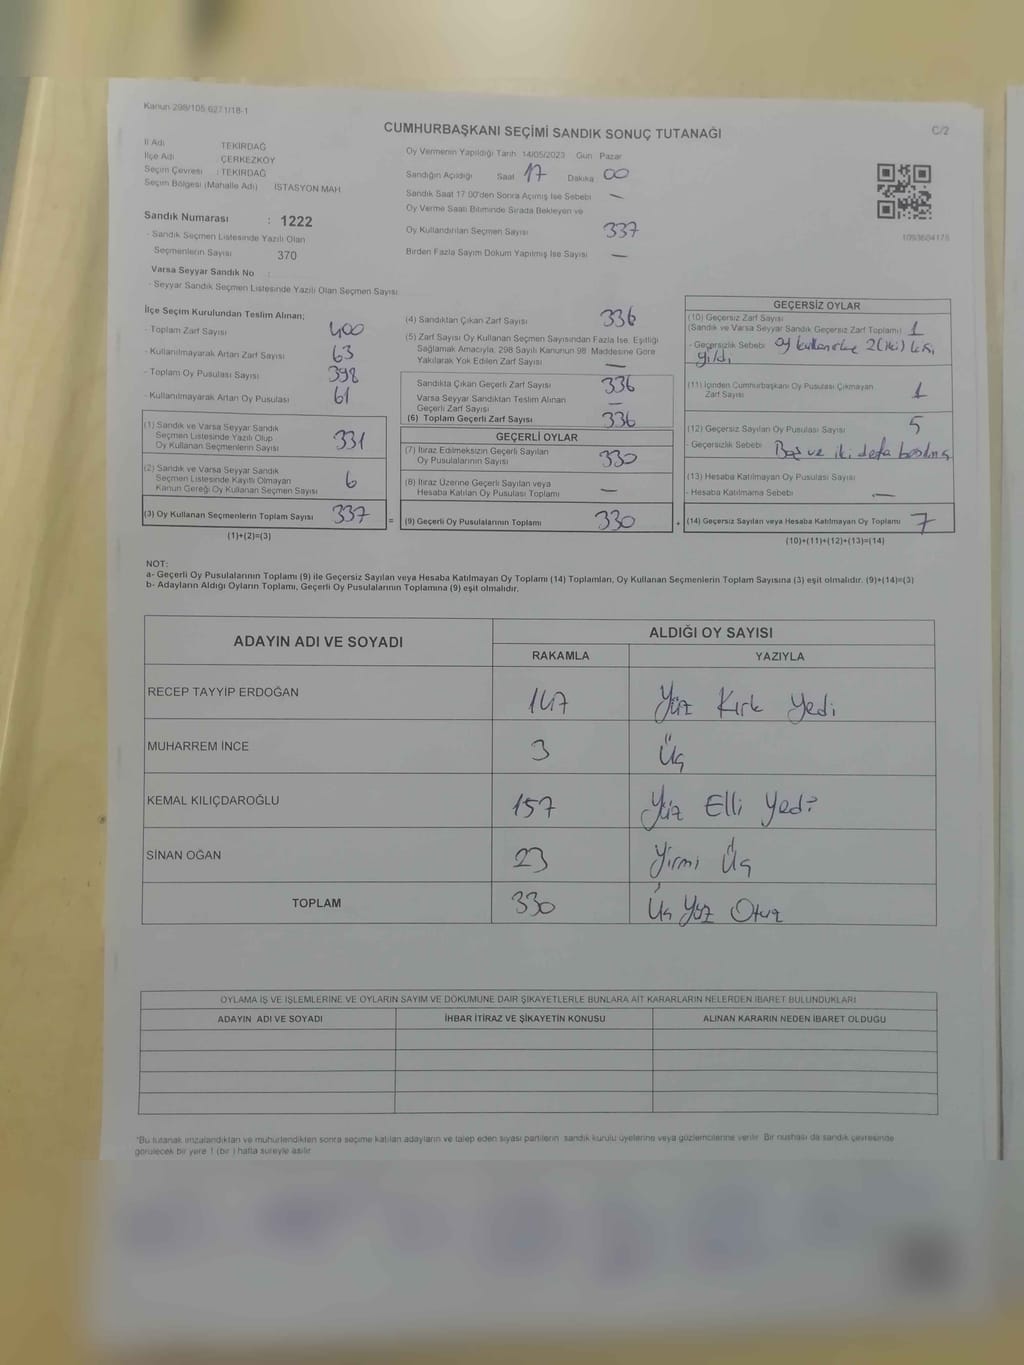 Kanun 298/105 6271/18-1
CUMHURBAŞKANI SEÇİMİ SANDIK SONUÇ TUTANAĞI
C/2
İl Adı TEKİRDAĞ
İlçe Adı : ÇERKEZKÖY
Seçim Çevresi : TEKİRDAĞ
Seçim Bölgesi (Mahalle Adı) İSTASYON MAH.
Sandık Numarası : 1222
- Sandık Seçmen Listesinde Yazılı Olan
Seçmenlerin Sayısı 370
Varsa Seyyar Sandık No :
- Seyyar Sandık Seçmen Listesinde Yazılı Olan Seçmen Sayısı
Oy Vermenin Yapıldığı Tarih 14/05/2023 Gün Pazar
Sandığın Açıldığı Saat 17 Dakika 00
Sandık Saat 17 00'den Sonra Açılmış İse Sebebi —
Oy Verme Saati Bitiminde Sırada Bekleyen ve
Oy Kullandırılan Seçmen Sayısı 337
Birden Fazla Sayım Döküm Yapılmış İse Sayısı —
1093604175
İlçe Seçim Kurulundan Teslim Alınan;
- Toplam Zarf Sayısı 400
- Kullanılmayarak Artan Zarf Sayısı 63
- Toplam Oy Pusulası Sayısı 398
- Kullanılmayarak Artan Oy Pusulası 61
(1) Sandık ve Varsa Seyyar Sandık
Seçmen Listesinde Yazılı Olup
Oy Kullanan Seçmenlerin Sayısı 331
(2) Sandık ve Varsa Seyyar Sandık
Seçmen Listesinde Kayıtlı Olmayan
Kanun Gereği Oy Kullanan Seçmen Sayısı 6
(3) Oy Kullanan Seçmenlerin Toplam Sayısı 337
(1)+(2)=(3)
(4) Sandıktan Çıkan Zarf Sayısı 336
(5) Zarf Sayısı Oy Kullanan Seçmen Sayısından Fazla İse, Eşitliği
Sağlamak Amacıyla, 298 Sayılı Kanunun 98 Maddesine Göre
Yakılarak Yok Edilen Zarf Sayısı —
Sandıkta Çıkan Geçerli Zarf Sayısı 336
Varsa Seyyar Sandıktan Teslim Alınan
Geçerli Zarf Sayısı —
(6) Toplam Geçerli Zarf Sayısı 336
GEÇERLİ OYLAR
(7) İtiraz Edilmeksizin Geçerli Sayılan
Oy Pusulalarının Sayısı 330
(8) İtiraz Üzerine Geçerli Sayılan veya
Hesaba Katılan Oy Pusulası Toplamı —
= (9) Geçerli Oy Pusulalarının Toplamı 330
GEÇERSİZ OYLAR
(10) Geçersiz Zarf Sayısı
(Sandık ve Varsa Seyyar Sandık Geçersiz Zarf Toplamı) 1
- Geçersizlik Sebebi 2(iki)
(11) İçinden Cumhurbaşkanı Oy Pusulası Çıkmayan
Zarf Sayısı 1
(12) Geçersiz Sayılan Oy Pusulası Sayısı 5
- Geçersizlik Sebebi Boş ve iki defa
(13) Hesaba Katılmayan Oy Pusulası Sayısı
- Hesaba Katılmama Sebebi —
+ (14) Geçersiz Sayılan veya Hesaba Katılmayan Oy Toplamı 7
(10)+(11)+(12)+(13)=(14)
NOT:
a- Geçerli Oy Pusulalarının Toplamı (9) ile Geçersiz Sayılan veya Hesaba Katılmayan Oy Toplamı (14) Toplamları, Oy Kullanan Seçmenlerin Toplam Sayısına (3) eşit olmalıdır. (9)+(14)=(3)
b- Adayların Aldığı Oyların Toplamı, Geçerli Oy Pusulalarının Toplamına (9) eşit olmalıdır.
ADAYIN ADI VE SOYADI
ALDIĞI OY SAYISI
RAKAMLA YAZIYLA
RECEP TAYYİP ERDOĞAN 147 Yüz Kırk Yedi
MUHARREM İNCE 3 Üç
KEMAL KILIÇDAROĞLU 157 Yüz Elli Yedi
SİNAN OĞAN 23 Yirmi Üç
TOPLAM 330 Üç Yüz Otuz
OYLAMA İŞ VE İŞLEMLERİNE VE OYLARIN SAYIM VE DÖKÜMÜNE DAİR ŞİKAYETLERLE BUNLARA AİT KARARLARIN NELERDEN İBARET BULUNDUKLARI
ADAYIN ADI VE SOYADI İHBAR İTİRAZ VE ŞİKAYETİN KONUSU ALINAN KARARIN NEDEN İBARET OLDUĞU
*Bu tutanak imzalandıktan ve mühürlendikten sonra seçime katılan adayların ve talep eden siyasi partilerin sandık kurulu üyelerine veya gözlemcilerine verilir. Bir nushası da sandık çevresinde
görülecek bir yere 1 (bir ) hafta süreyle asılır